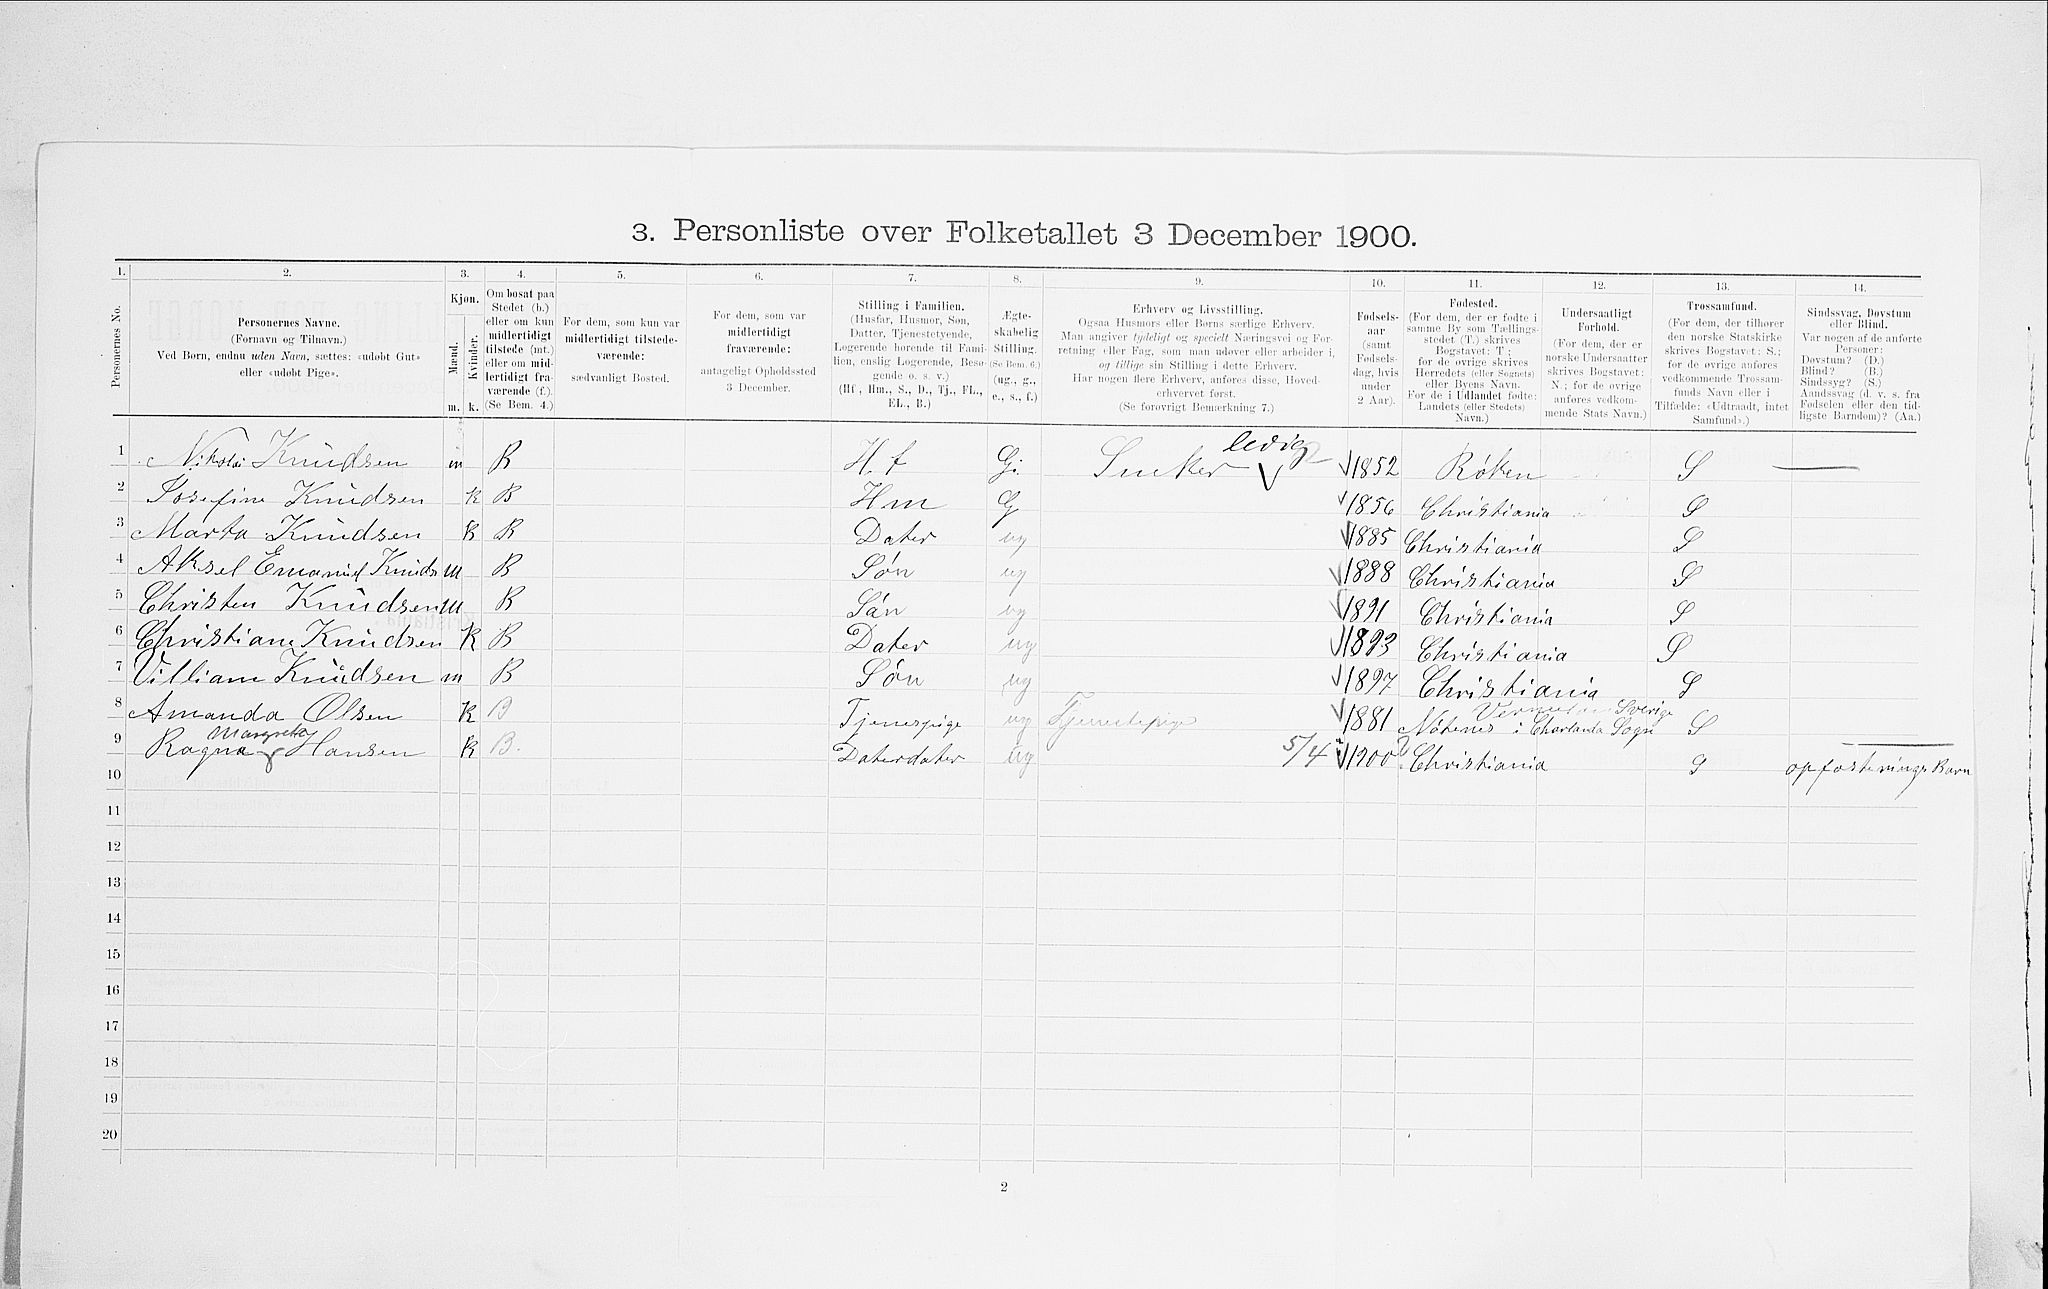 3. Personliste over Folketallet 3 December 1900.
1. 2. 3. 4. 5. 6. 7. 8. 9. 10. 11. 12. 13. 14.
Personernes No.
Personernes Navne.
(Fornavn og Tilnavn.)
Ved Børn, endnu uden Navn, sættes: «udøbt Gut»
eller «udøbt Pige».
Kjøn.
Mænd.
Kvinder.
m. k.
Om bosat paa
Stedet (b.)
eller om kun
midlertidigt
tilstede (mt.)
eller om mid-
lertidigt fra-
værende (f.).
(Se Bem. 4.)
For dem, som kun var
midlertidigt tilstede-
værende:
sædvanligt Bosted.
For dem, som var
midlertidigt
fraværende:
antageligt Opholdssted
3 December.
Stilling i Familien.
(Husfar, Husmor, Søn,
Datter, Tjenestetyende,
Logerende hørende til Fami-
lien, enslig Logerende, Besø-
gende o. s. v.)
(Hf, Hm., S., D., Tj., FL.,
EL., B.)
Ægte-
skabelig
Stilling.
(Se Bem. 6.)
(ug., g.,
e., s., f.)
Erhverv og Livsstilling.
Ogsaa Husmors eller Børns særlige Erhverv.
Man angiver tydeligt og specielt Næringsvei og For-
retning eller Fag, som man udøver eller arbeider i,
og tillige sin Stilling i dette Erhverv.
Har nogen flere Erhverv, anføres disse, Hoved-
erhvervet først.
(Se forøvrigt Bemærkning 7.)
Fødsels-
aar
(samt
Fødsels-
dag, hvis
under
2 Aar).
Fødested.
(For dem, der er fødte i
samme By som Tællings-
stedet (T.) skrives
Bogstavet: T;
for de øvrige skrives
Herredets (eller Sognets)
eller Byens Navn.
For de i Udlandet fødte:
Landets (eller Stedets)
Navn.)
Undersaatligt
Forhold.
(For dem, der er
norske Undersaatter
skrives Bogstavet:
N.; for de øvrige
anføres vedkom-
mende Stats Navn.)
Trossamfund.
(For dem, der tilhører
den norske Statskirke
skrives Bogstavet: S.;
for de øvrige anføres
vedkommende Trossam-
funds Navn eller i
Tilfælde: «Udtraadt, intet
Samfund».)
Sindssvag, Døvstum
eller Blind.
Var nogen af de anførte
Personer:
Døvstum? (D.)
Blind? (B.)
Sindssyg? (S.)
Aandssvag (d. v. s. fra
Fødselen eller den tid-
ligste Barndom)? (Aa.)
1 Nikolai Knudsen m B H. f G. ledig 1852 Røken S
2 Josefine Knudsen K B Hm G 1856 Christiania S
3 Marta Knudsen K B Dater ug 1885 Christiania S
4 Aksel Emanuel Knuds m B Søn ug 1888 Christiania S
5 Christen Knudsen m B Søn ug 1891 Christiania S
6 Christiane Knudsen K B Dater ug 1893 Christiania S
7 Villiam Knudsen m B Søn ug 1897 Christiania S
8 Amanda Olsen K B Tjenespige ug Tjenestepige 1881 Sverige S
9 Ragna Margrethe Hansen K B. Daterdater ug 5/4 1900 Christiania S opfostrings Barn
10
11
12
13
14
15
16
17
18
19
20
2